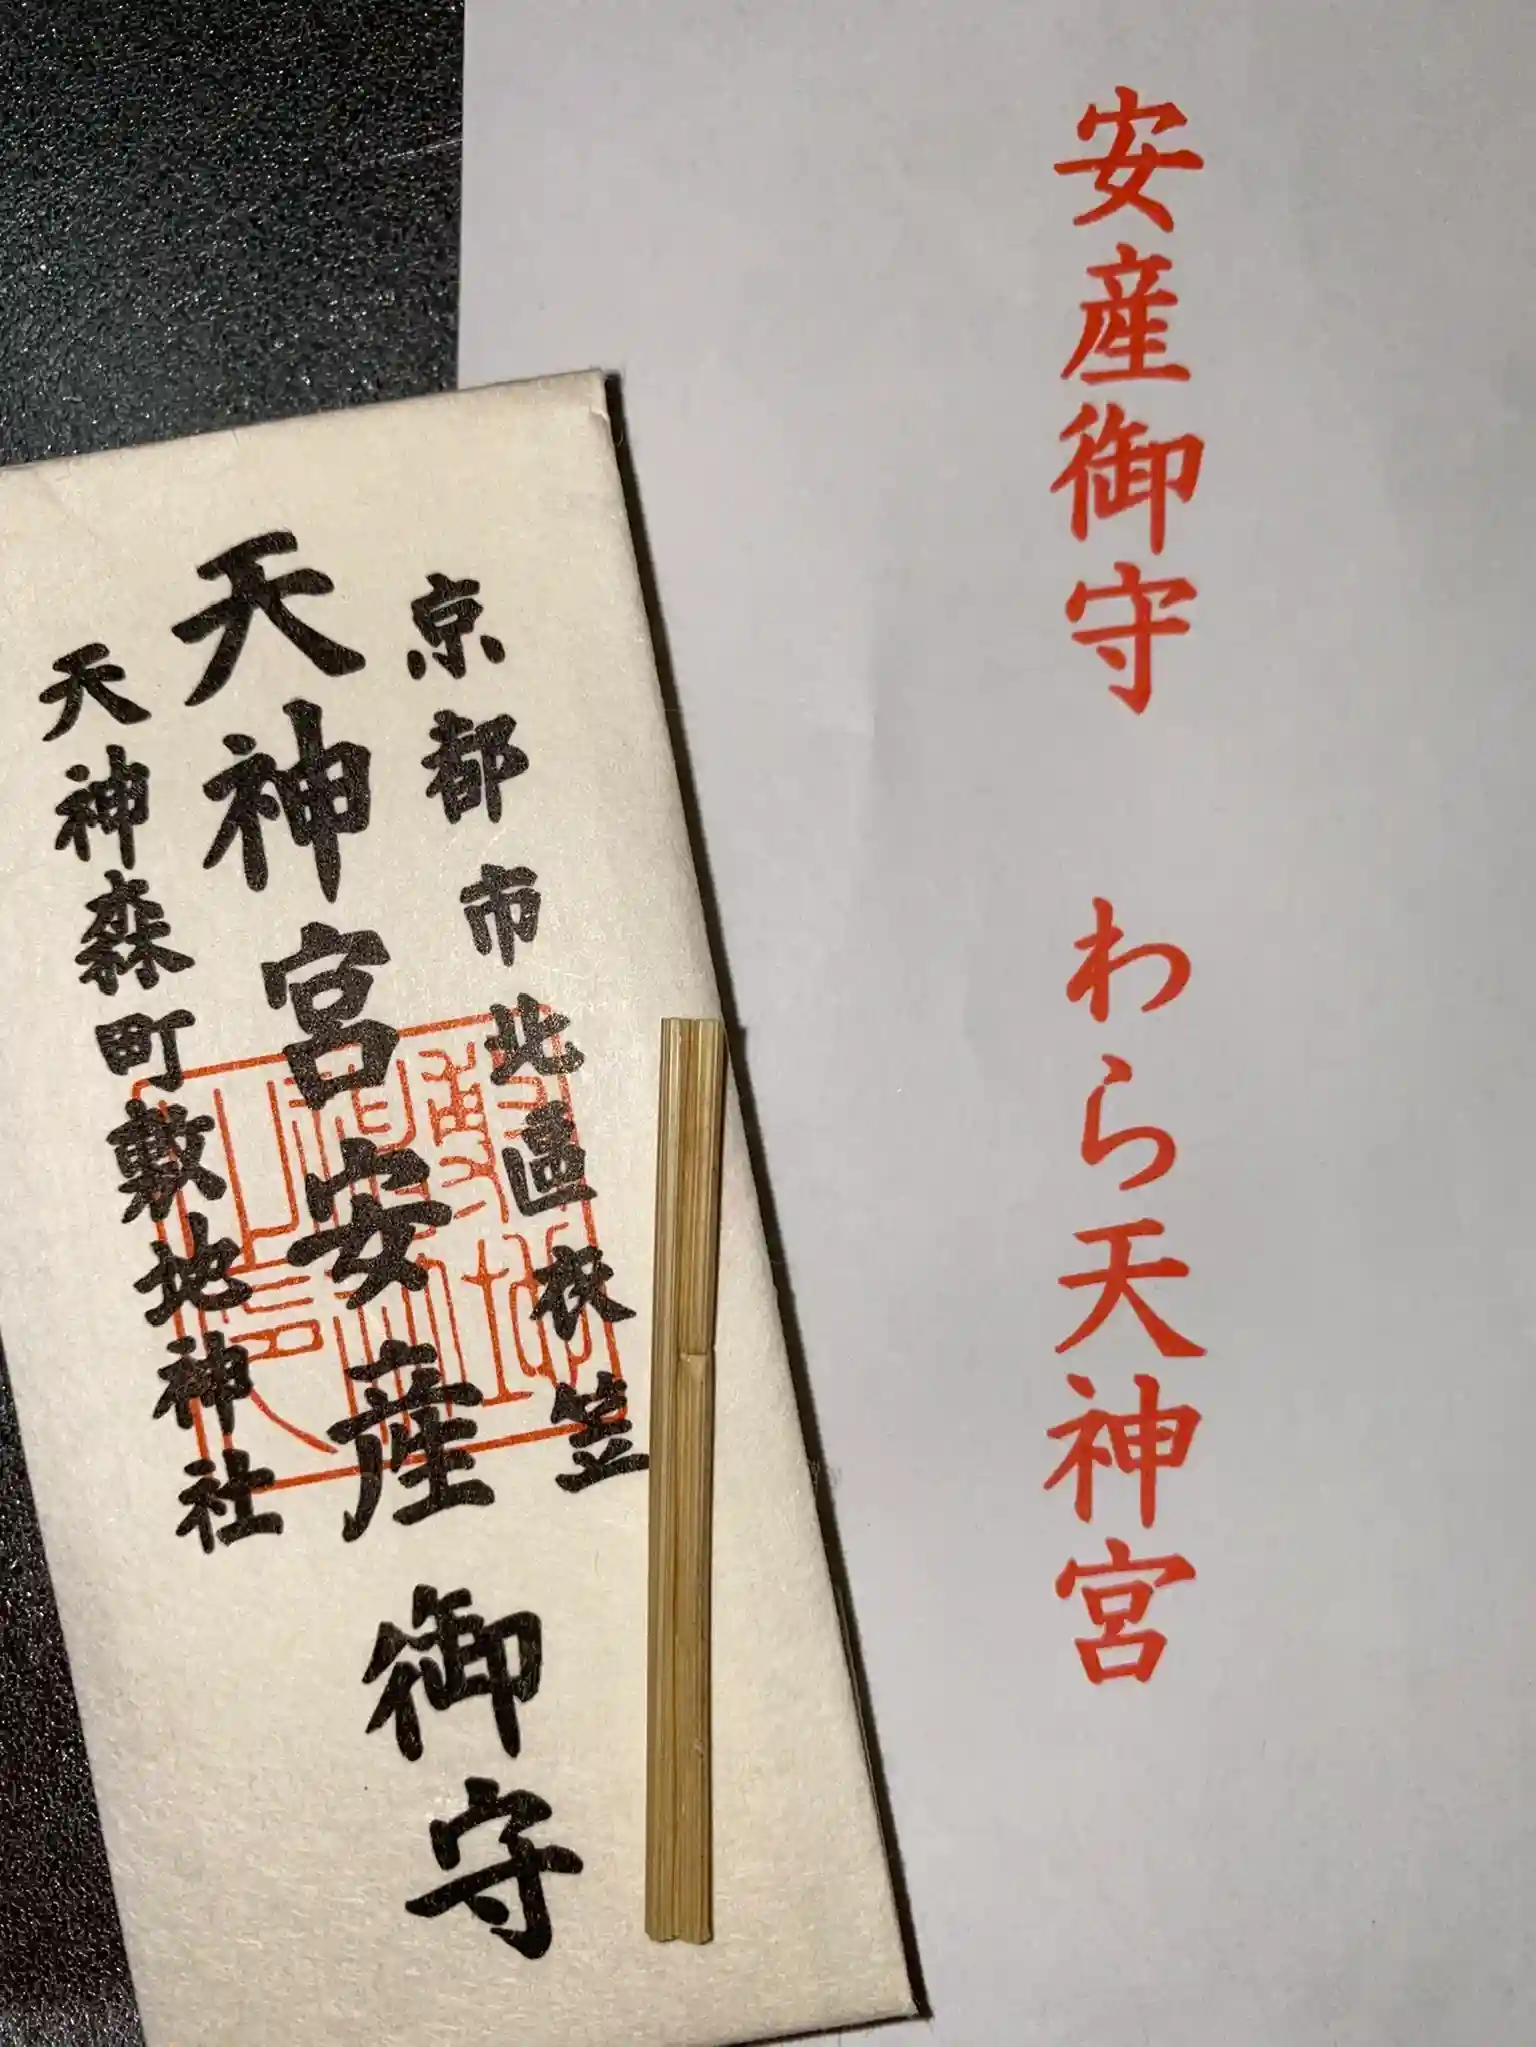 安産御守　わら天神宮
京都市北區衣笠
天神宮安産御守
天神森町敷地神社